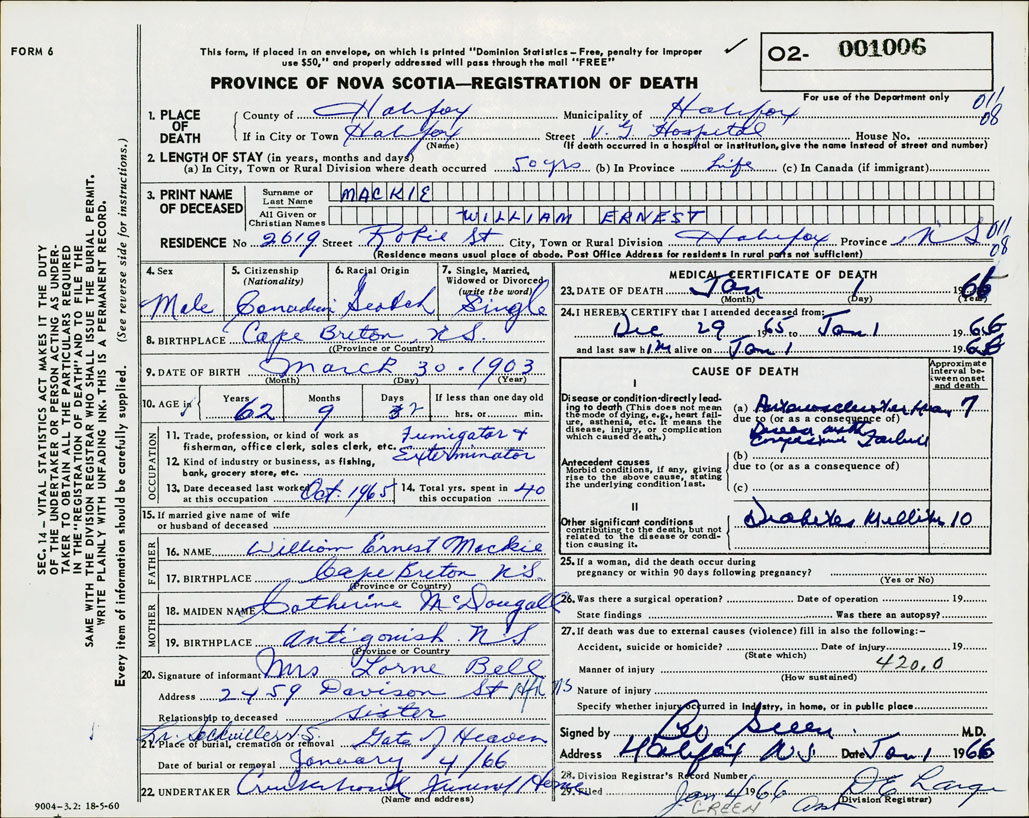 FORM 6
This form, if placed in an envelope, on which is printed "Dominion Statistics – Free, penalty for improper
use $50," and properly addressed will pass through the mail "FREE"
✓
O2- 001006
PROVINCE OF NOVA SCOTIA—REGISTRATION OF DEATH
For use of the Department only
011
08
1. PLACE OF DEATH
County of Halifax Municipality of Halifax
If in City or Town Halifax (Name) Street V. G Hospital House No.
(If death occurred in a hospital or institution, give the name instead of street and number)
2. LENGTH OF STAY (in years, months and days)
(a) In City, Town or Rural Division where death occurred 50 yrs (b) In Province Life (c) In Canada (if immigrant)
3. PRINT NAME OF DECEASED
Surname or Last Name MACKIE
All Given or Christian Names WILLIAM ERNEST
RESIDENCE No 2619 Street Robie St City, Town or Rural Division Halifax Province N S
011
08
(Residence means usual place of abode. Post Office Address for residents in rural parts not sufficient)
4. Sex Male
5. Citizenship (Nationality) Canadian
6. Racial Origin Scotch
7. Single, Married, Widowed or Divorced (write the word) Single
8. BIRTHPLACE Cape Breton, N.S.
(Province or Country)
9. DATE OF BIRTH March 30. 1903
(Month) (Day) (Year)
10. AGE in Years 62 Months 9 Days 2 If less than one day old hrs. or min.
OCCUPATION
11. Trade, profession, or kind of work as fisherman, office clerk, sales clerk, etc. Fumigator & Exterminator
12. Kind of industry or business, as fishing, bank, grocery store, etc.
13. Date deceased last worked at this occupation Oct. 1965
14. Total yrs. spent in this occupation 40
15. If married give name of wife or husband of deceased
FATHER
16. NAME William Ernest Mackie
17. BIRTHPLACE Cape Breton N.S.
(Province or Country)
MOTHER
18. MAIDEN NAME Catherine McDougall
19. BIRTHPLACE Antigonish N.S
(Province or Country)
20. Signature of informant Mrs Lorne Bell
Address 2459 Davison St Hfx NS
Relationship to deceased Sister
Lr. Sackville N.S.
21. Place of burial, cremation or removal Gate of Heaven
Date of burial or removal January 4/66
22. UNDERTAKER Cruikshank Funeral Home
(Name and address)
9004–3.2: 18-5-60
MEDICAL CERTIFICATE OF DEATH
23. DATE OF DEATH Jan 1 1966
(Month) (Day) (Year)
24. I HEREBY CERTIFY that I attended deceased from:
Dec 29 1965 to Jan 1 1966
and last saw him alive on Jan 1 1966
CAUSE OF DEATH
Approximate interval between onset and death
I
Disease or condition directly leading to death (This does not mean the mode of dying, e.g., heart failure, asthenia, etc. It means the disease, injury, or complication which caused death.)
(a) Arteriosclerotic Heart 7
due to (or as a consequence of)
Disease with
Congestive Failure
Antecedent causes
Morbid conditions, if any, giving rise to the above cause, stating the underlying condition last.
(b)
due to (or as a consequence of)
(c)
II
Other significant conditions contributing to the death, but not related to the disease or condition causing it.
Diabetes Mellitus 10
25. If a woman, did the death occur during pregnancy or within 90 days following pregnancy?
(Yes or No)
26. Was there a surgical operation? Date of operation 19
State findings Was there an autopsy?
27. If death was due to external causes (violence) fill in also the following:–
Accident, suicide or homicide? Date of injury 19
(State which)
420.0
Manner of injury
(How sustained)
Nature of injury
Specify whether injury occurred in industry, in home, or in public place
Signed by Green M.D.
Address Halifax N.S Date Jan 1 1966
28. Division Registrar's Record Number
29. Filed Jan 4 1966 D E Large
(Division Registrar)
GREEN Asst
SEC. 14 – VITAL STATISTICS ACT MAKES IT THE DUTY
OF THE UNDERTAKER OR PERSON ACTING AS UNDER-
TAKER TO OBTAIN ALL THE PARTICULARS REQUIRED
IN THE "REGISTRATION OF DEATH" AND TO FILE THE
SAME WITH THE DIVISION REGISTRAR WHO SHALL ISSUE THE BURIAL PERMIT.
WRITE PLAINLY WITH UNFADING INK. THIS IS A PERMANENT RECORD.
Every item of information should be carefully supplied. (See reverse side for instructions.)